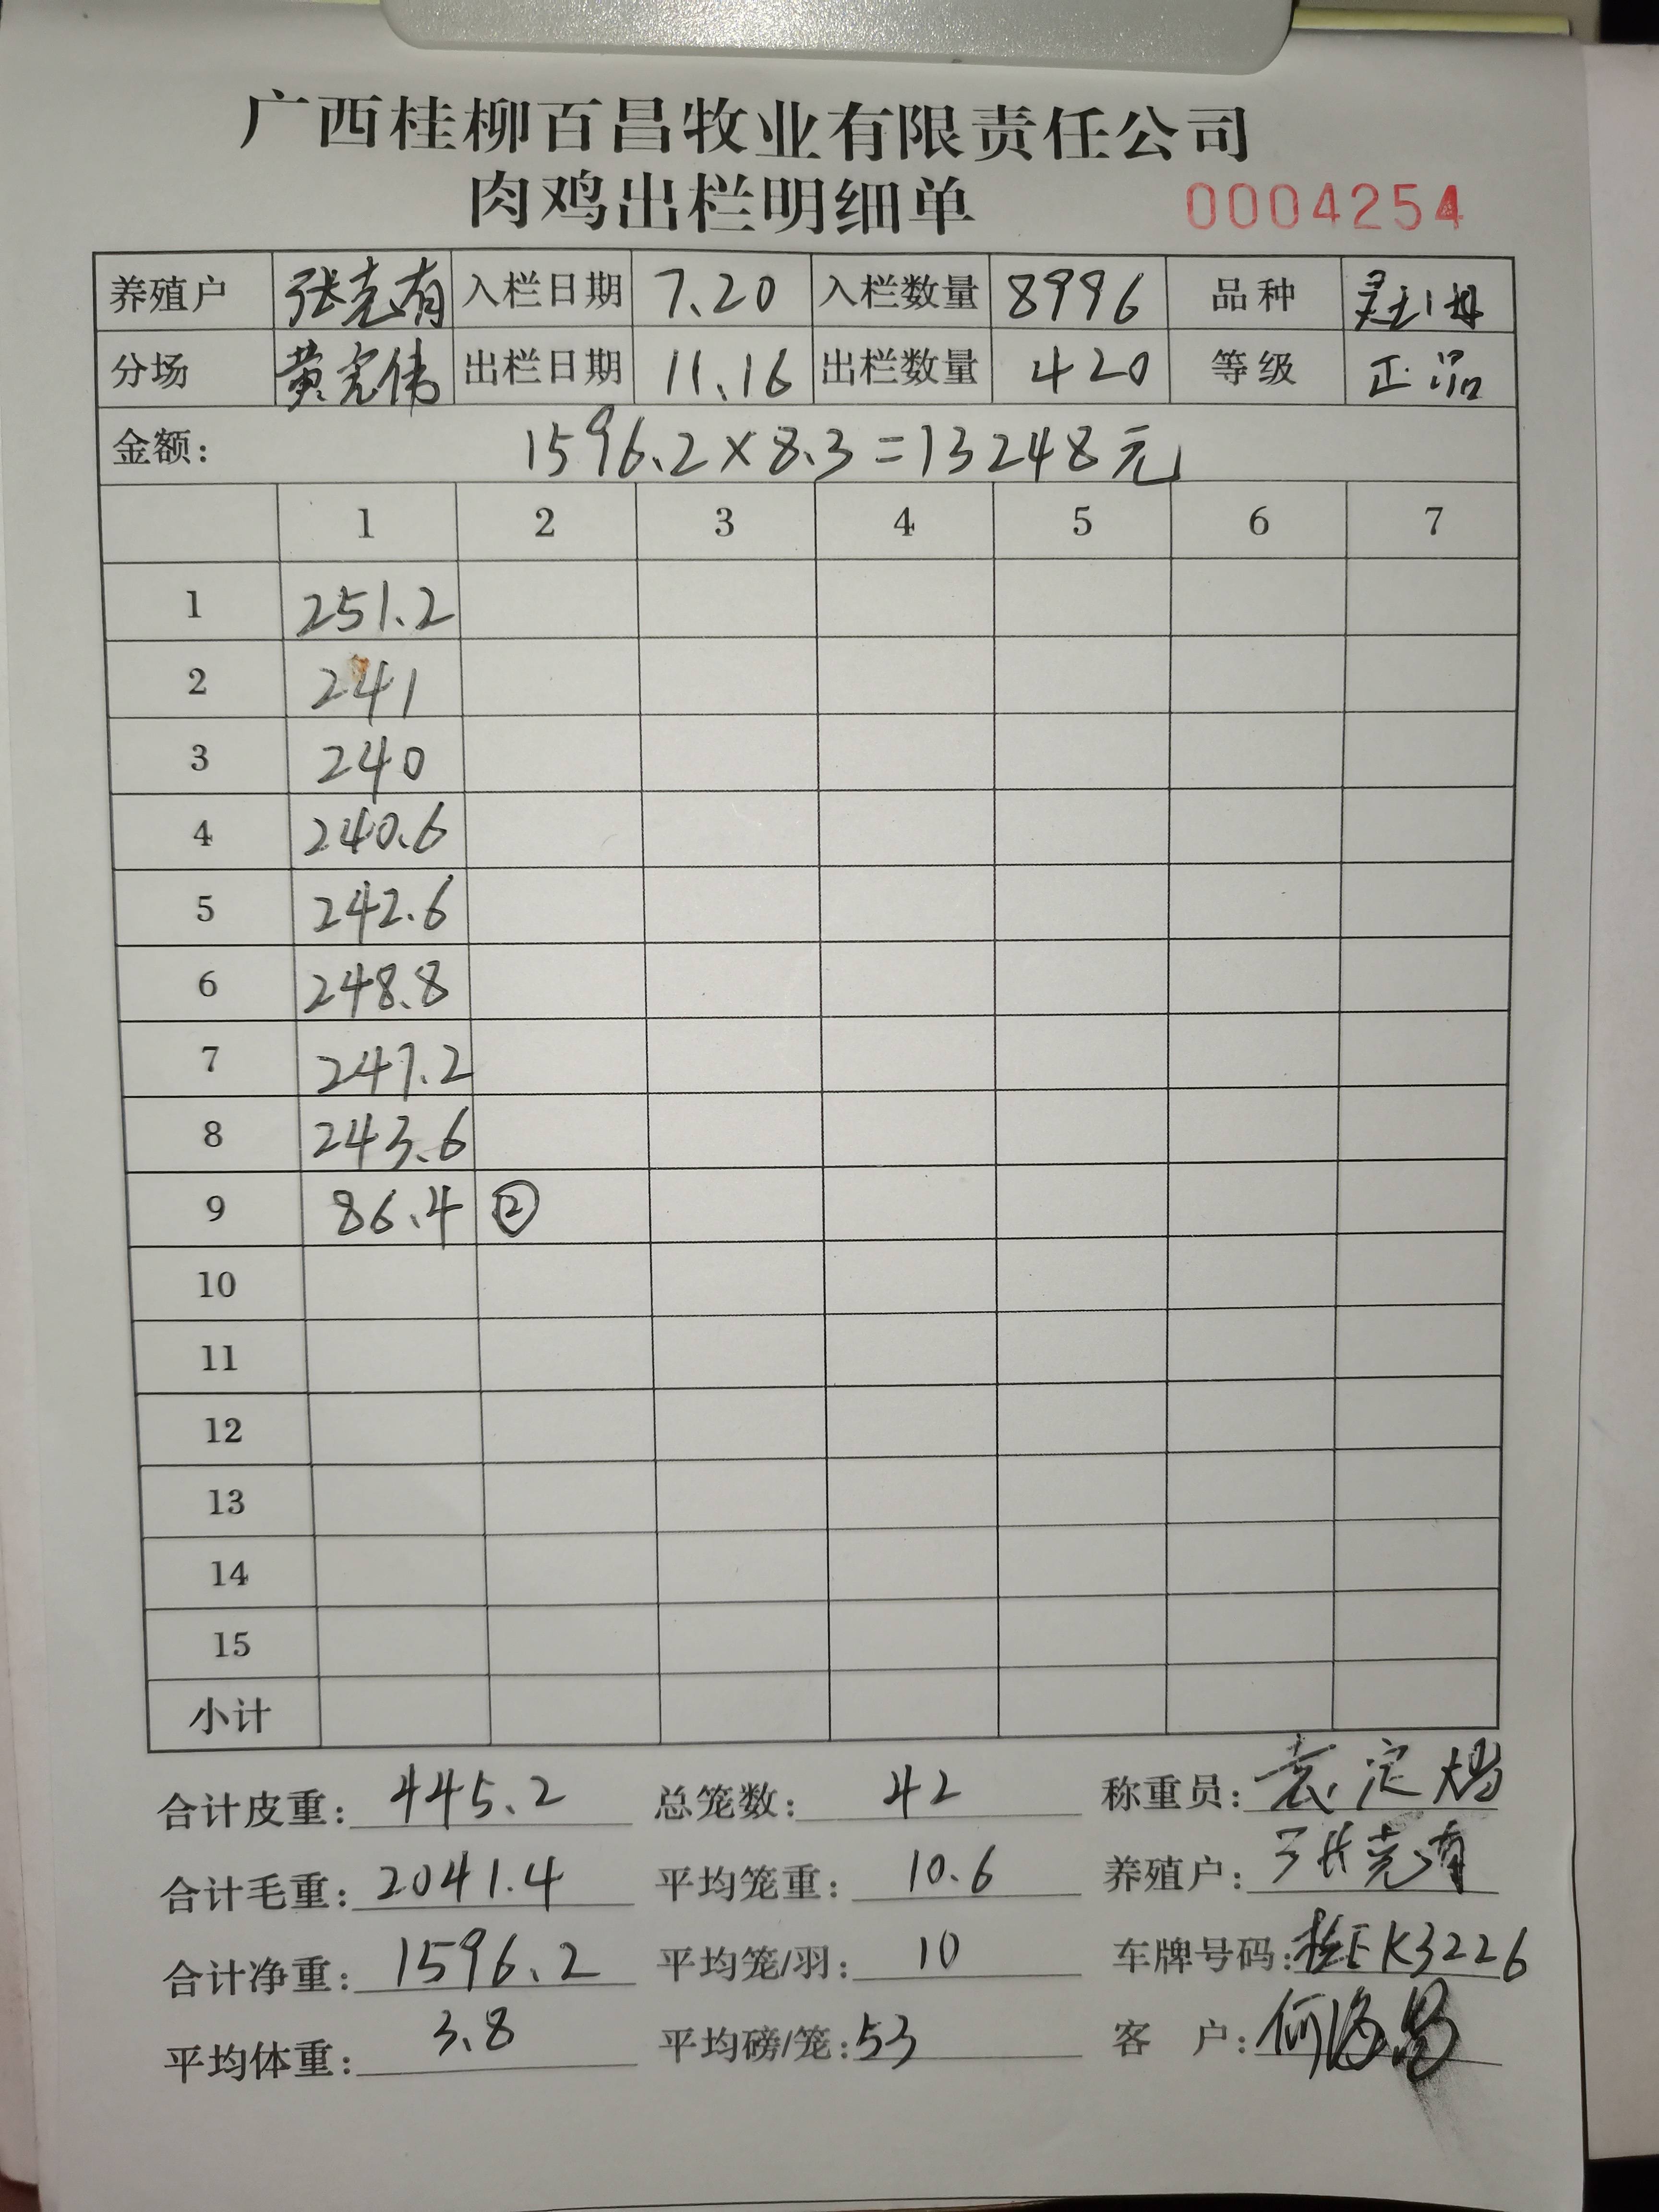 广西桂柳百昌牧业有限责任公司
肉鸡出栏明细单 0004254
养殖户 张克有 入栏日期 7.20 入栏数量 8996 品种
分场 黄宪伟 出栏日期 11.16 出栏数量 420 等级 正品
金额: 1596.2×8.3=13248元
1 2 3 4 5 6 7
1 251.2
2 241
3 240
4 240.6
5 242.6
6 248.8
7 247.2
8 243.6
9 86.4 ②
10
11
12
13
14
15
小计
合计皮重: 445.2 总笼数: 42 称重员: 袁定
合计毛重: 2041.4 平均笼重: 10.6 养殖户: 张克有
合计净重: 1596.2 平均笼/羽: 10 车牌号码: 桂EK3226
平均体重: 3.8 平均磅/笼: 53 客 户: 何